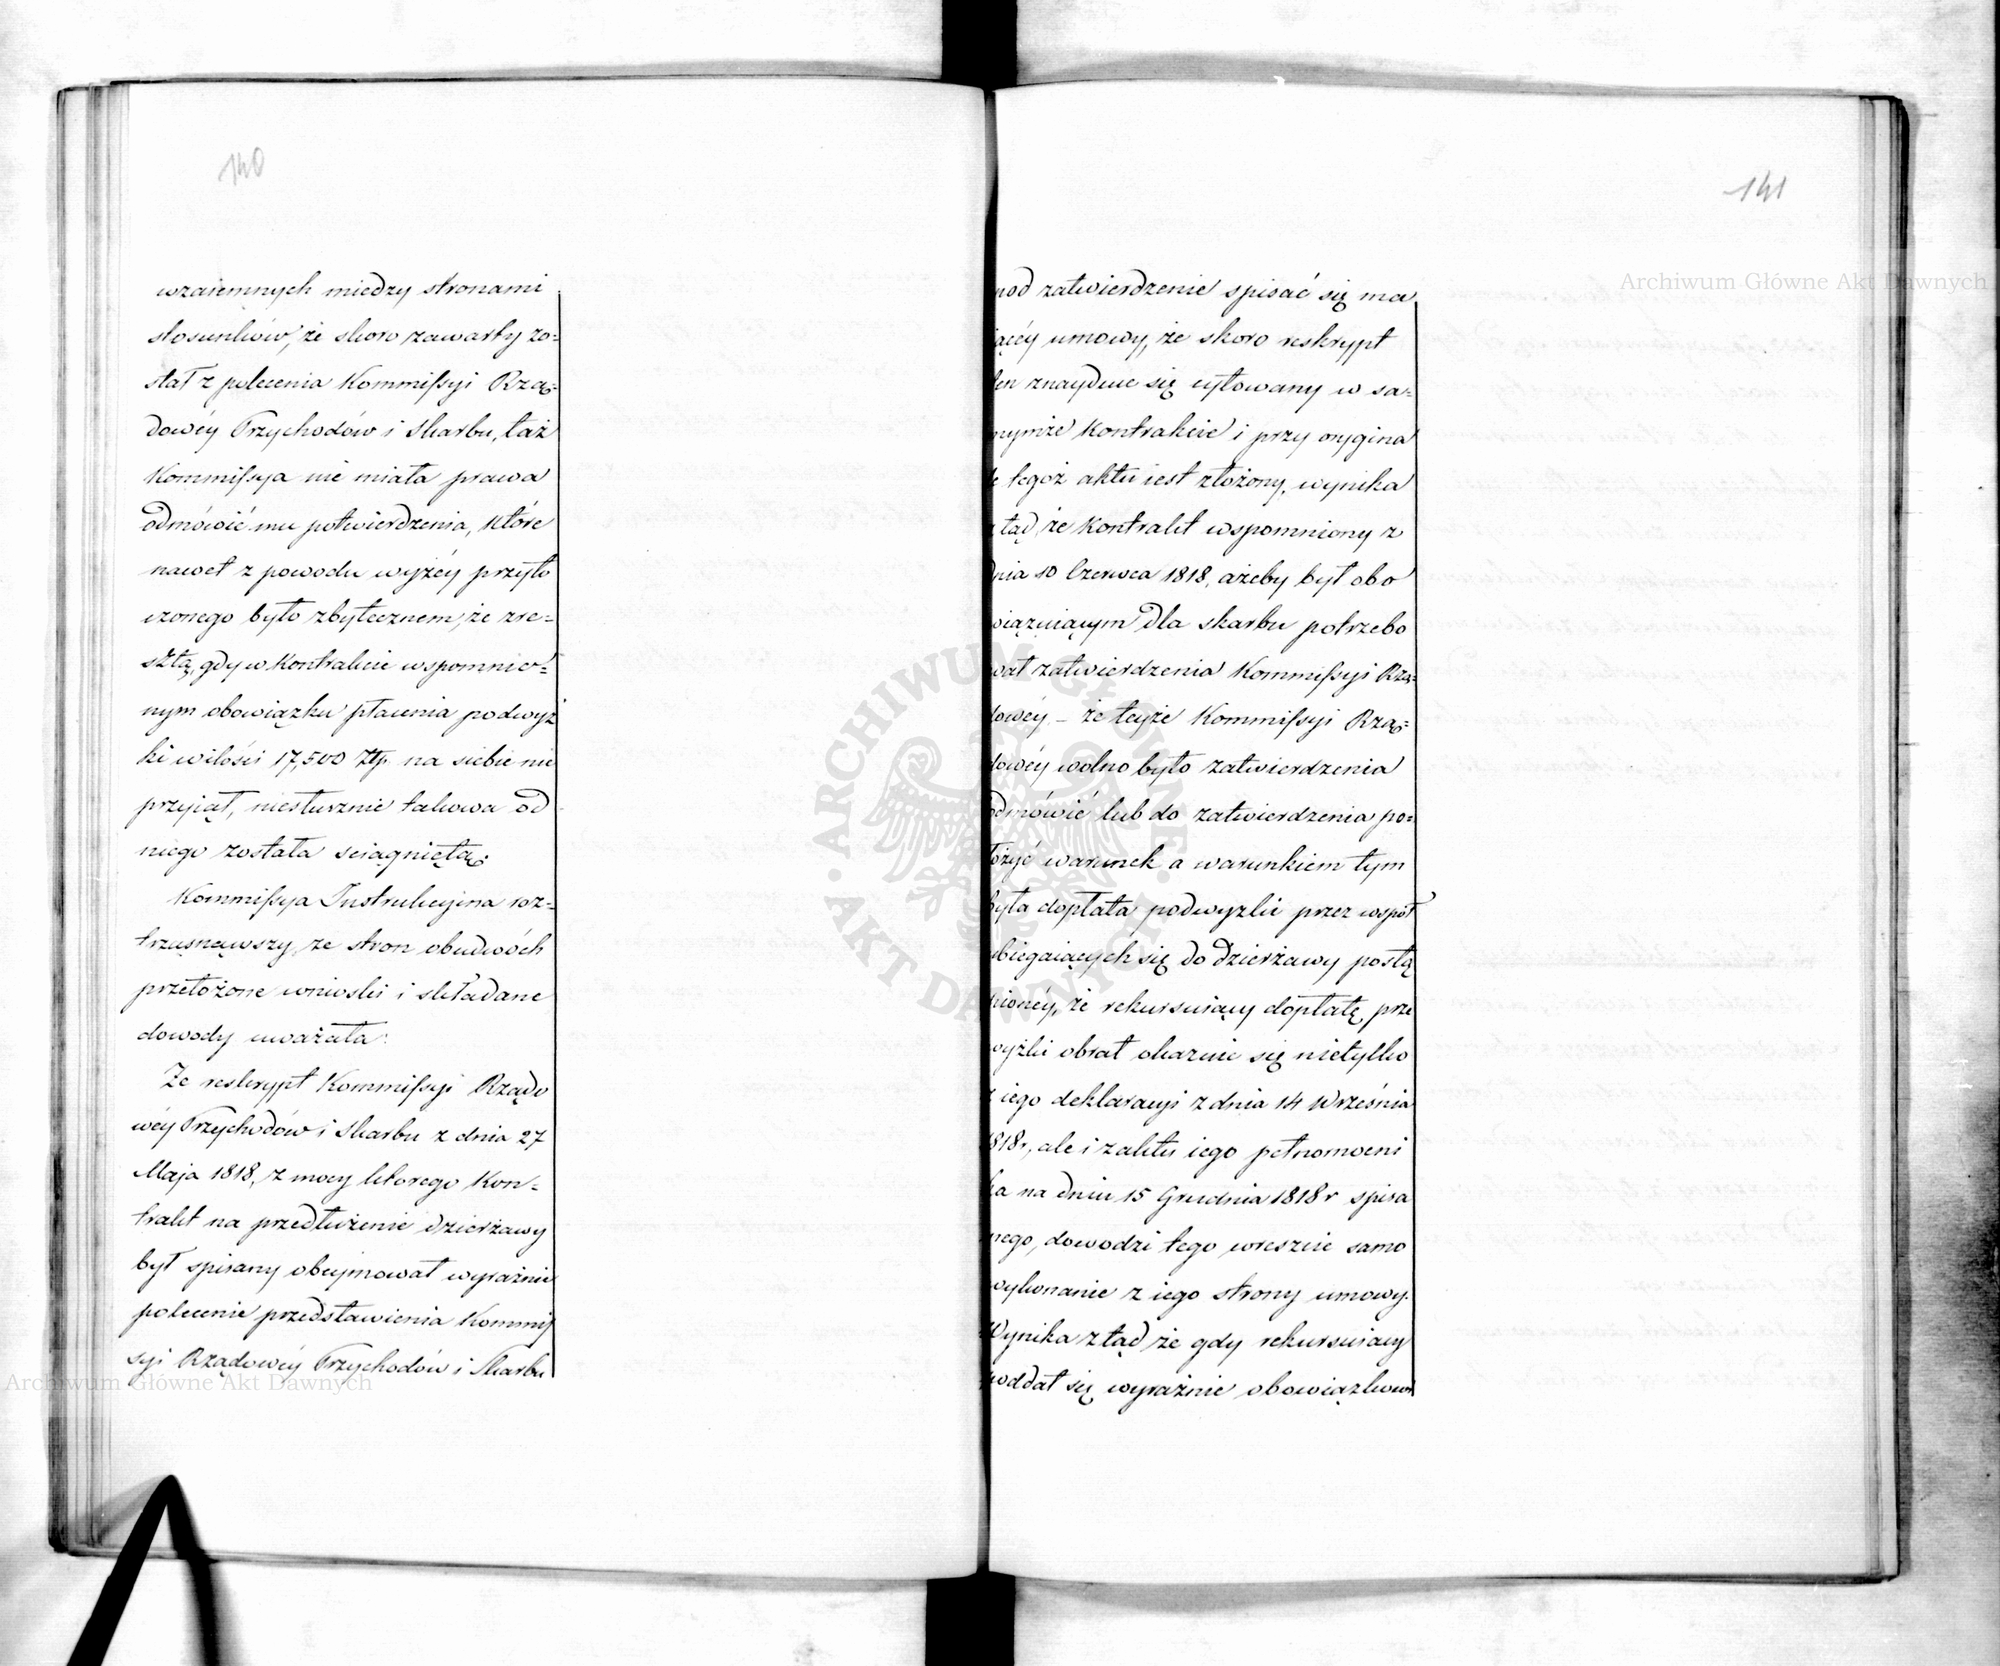 140
wzaiemnych między stronami
stosunków, że skoro zawarty zo=
stał z polecenia Kommissyi Rzą=
dowéy Przychodów i Skarbu, taż
Kommissya nie miała prawa
odmówić mu potwierdzenia, które
nawet z powodu wyżéy przyto
czonego było zbytecznem, że zre=
sztą, gdy w Kontrakcie wspomnio=
nym obowiązku płacenia podwyż
ki wilości 17,500 Złp. na siebie nie
przyiął, niesłusznie takowa od
niego została sciągniętą.
Kommissya Instrukcyina roz=
trząsnąwszy ze stron obudwóch
przełożone wnioski i składane
dowody uważała:
Że reskrypt Kommissyi Rządo
wéy Przychodów i Skarbu z dnia 27
Maja 1818, z mocy którego Kon=
trakt na przedłużenie dzierżawy
był spisany obeymował wyraźnie
polecenie przedstawienia Kommis
syi Rządowéy Przychodów i Skarbu
141
pod zatwierdzenie spisać się ma
iącéy umowy, że skoro reskrypt
ten znayduie się cytowany w sa=
mymże Kontrakcie i przy orygina
le tegoż aktu iest złożony, wynika
ztąd że Kontrakt wspomniony z
dnia 10 Czerwca 1818, ażeby był obo
wiązuiącym dla skarbu potrzebo
wał zatwierdzenia Kommissyi Rzą=
dowéy – że teyże Kommissyi Rzą=
dowéy wolno było zatwierdzenia
odmówić lub do zatwierdzenia po=
łożyć warunek a warunkiem tym
była dopłata podwyzki przez współ
ubiegaiących się do dzierżawy postą
pionéy, że rekursuiący dopłatę prze
wyżki obrał okazuie się nietylko
z iego deklaracyi z dnia 14 Września
1818r, ale i z aktu iego pełnomocni
ka na dniu 15 Grudnia 1818 r spisa
nego, dowodzi tego wreszcie samo
wykonanie z iego strony umowy.
Wynika ztąd że gdy rekursuiący
poddał się wyraźnie obowiązkowi
Archiwum Główne Akt Dawnych
Archiwum Główne Akt Dawnych
ARCHIWUM GŁÓWNE · AKT DAWNYCH ·